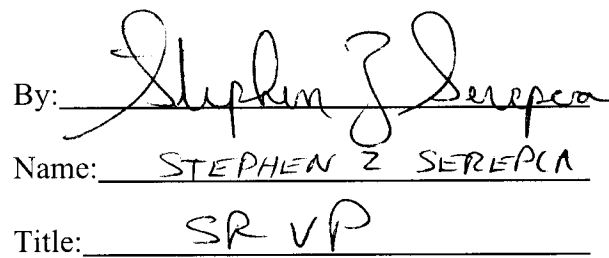 By: Stephen Z Serepca
Name: STEPHEN Z SEREPCA
Title: SR VP